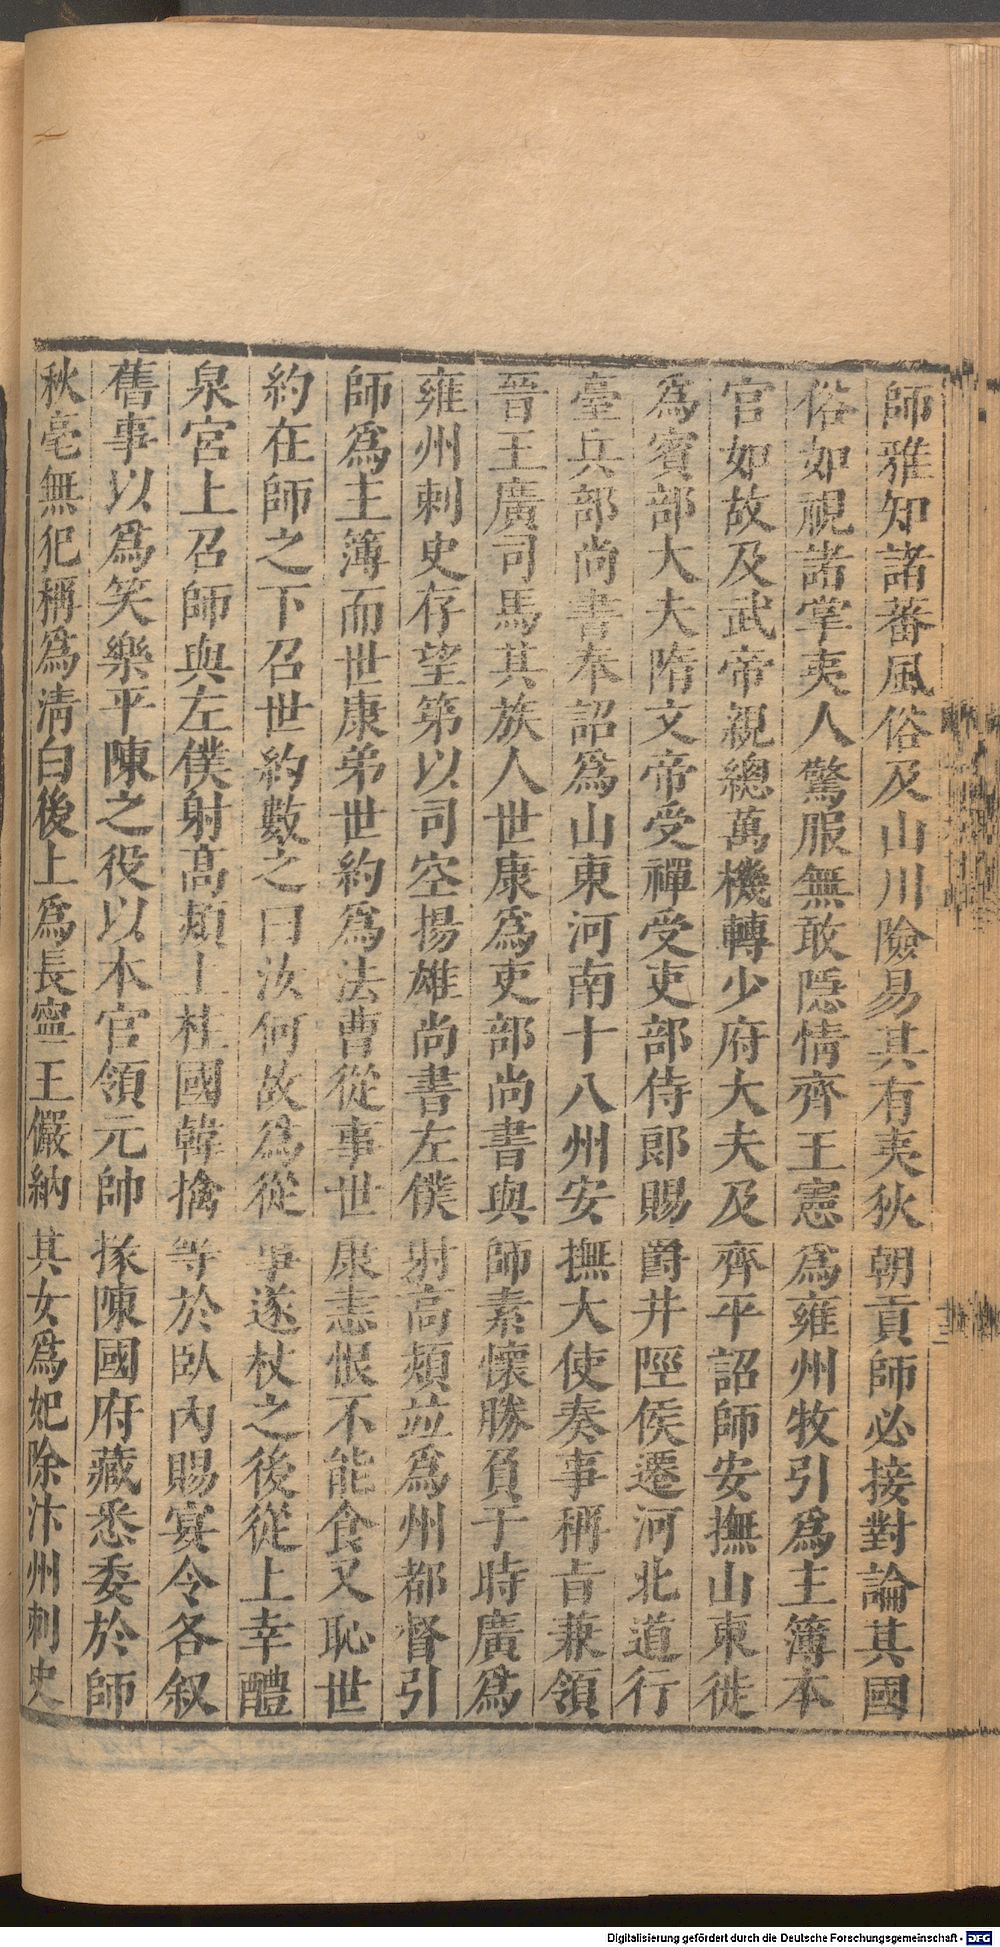 師雅知諸蕃風俗及山川險易其有夷狄朝貢師必接對論其國
俗如視諸掌夷人驚服無敢隱情齊王憲爲雍州牧引爲主簿本
官如故及武帝親總萬機轉少府大夫及齊平詔師安撫山東徙
爲賓部大夫隋文帝受禪受吏部侍郎賜爵井陘侯遷河北道行
臺兵部尚書奉詔爲山東河南十八州安撫大使奏事稱旨兼領
晉王廣司馬其族人世康爲吏部尚書與師素懷勝負于時廣爲
雍州刺史存望第以司空揚雄尚書左僕射高熲竝爲州都督引
師爲主簿而世康弟世約爲法曹從事世康恚恨不能食又恥世
約在師之下召世約數之曰汝何故爲從事遂杖之後從上幸醴
泉宮上召師與左僕射高熲上柱國韓擒等於臥內賜宴令各叙
舊事以爲笑樂平陳之役以本官領元帥掾陳國府藏悉委於師
秋毫無犯稱爲清白後上爲長寧王儼納其女爲妃除汴州刺史
Digitalisierung gefördert durch die Deutsche Forschungsgemeinschaft - DFG